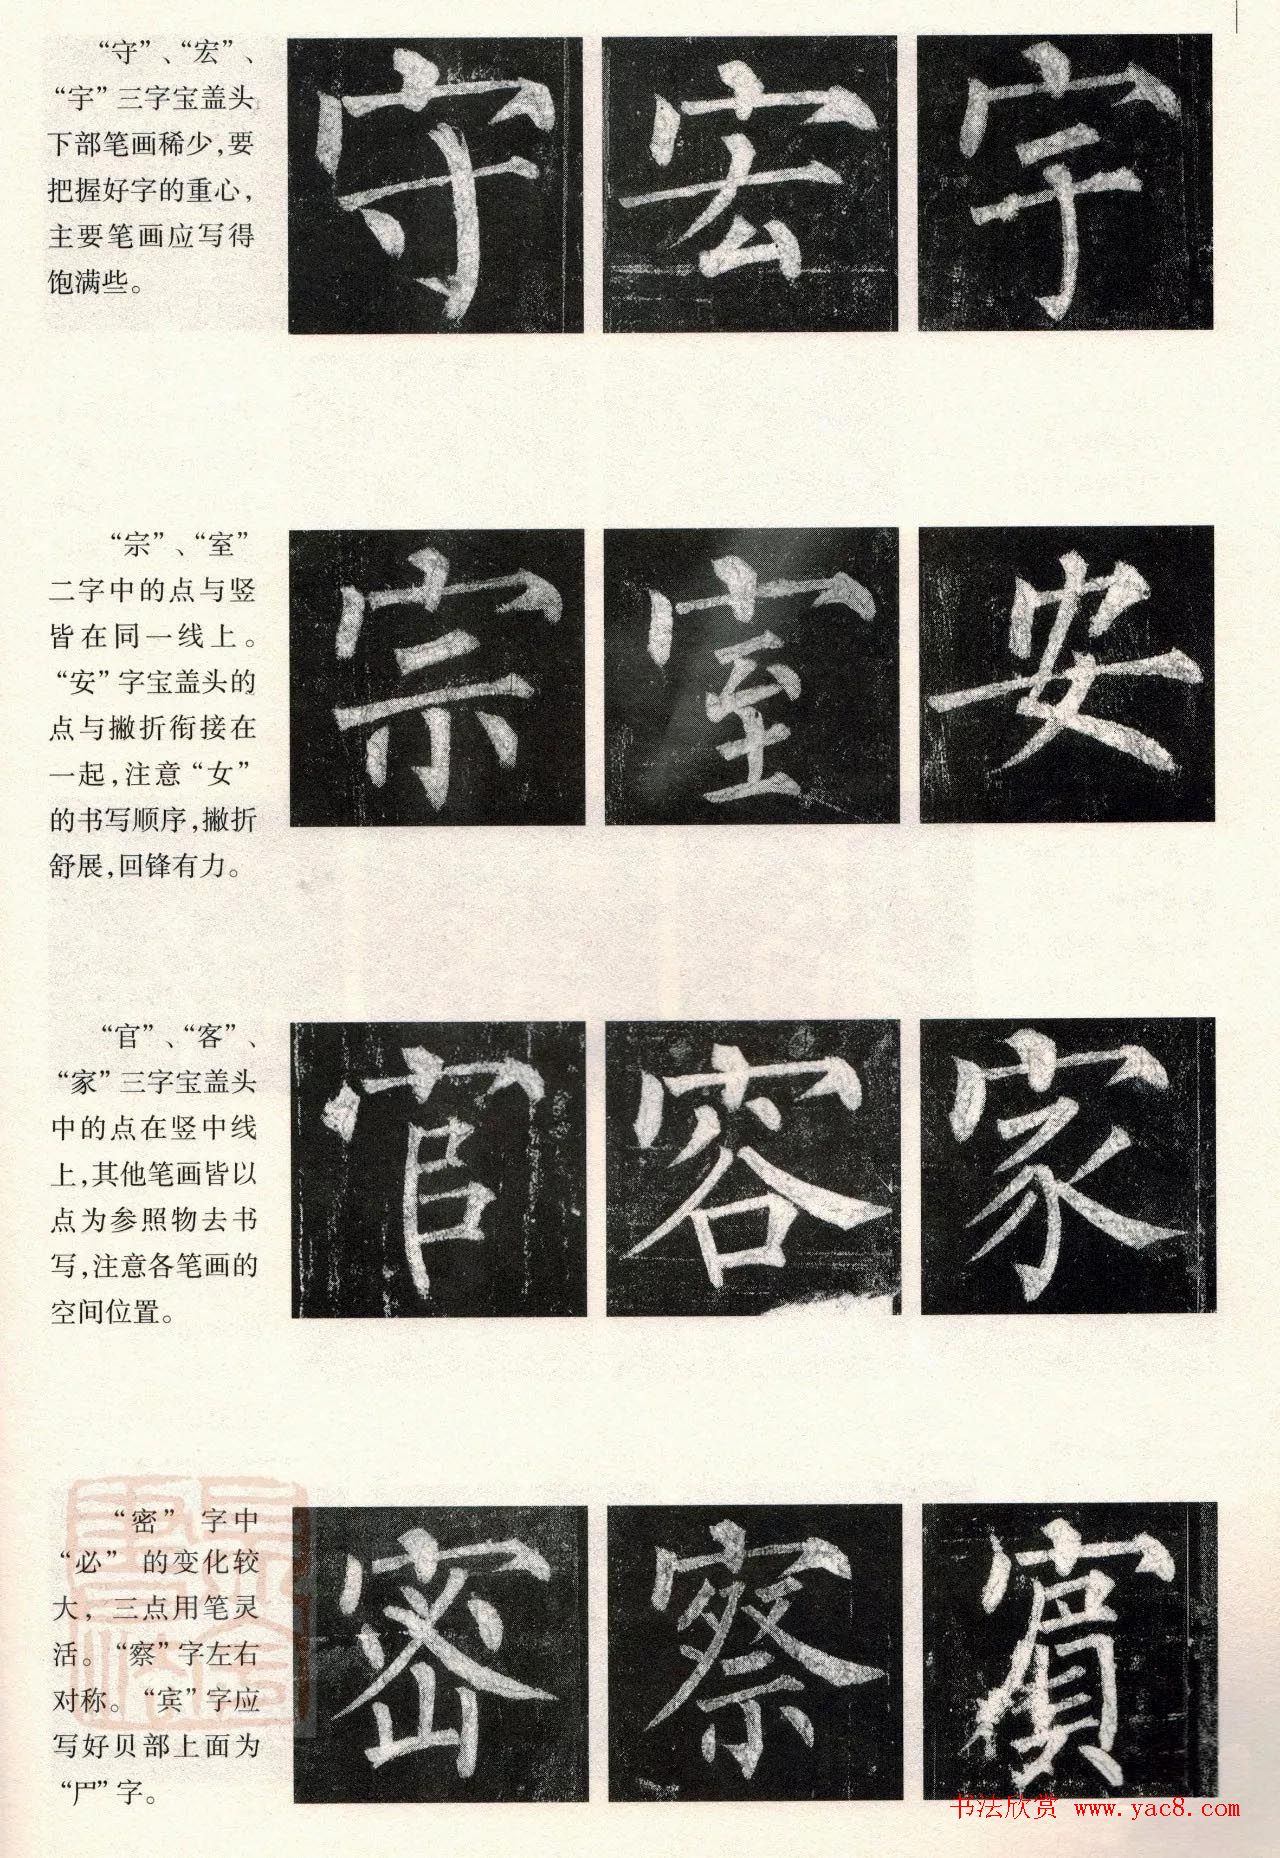 “守”、“宏”、
“宇”三字宝盖头
下部笔画稀少,要
把握好字的重心,
主要笔画应写得
饱满些。
守 宏 宇
“宗”、“室”
二字中的点与竖
皆在同一线上。
“安”字宝盖头的
点与撇折衔接在
一起,注意“女”
的书写顺序,撇折
舒展,回锋有力。
宗 室 安
“官”、“客”、
“家”三字宝盖头
中的点在竖中线
上,其他笔画皆以
点为参照物去书
写,注意各笔画的
空间位置。
官 容 家
“密” 字中
“必” 的变化较
大，三点用笔灵
活。“察”字左右
对称。“宾”字应
写好贝部上面为
字。
密 察 賓
书法欣赏 www.yac8.com